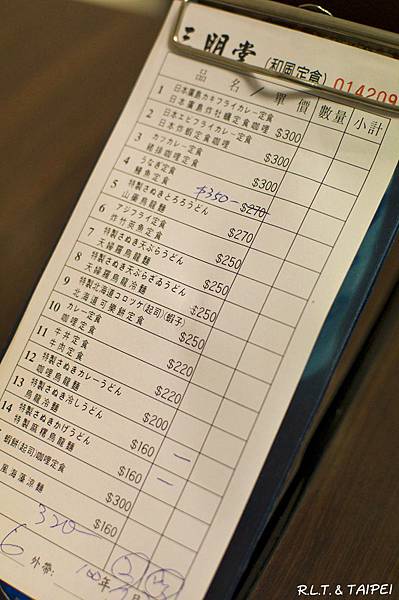 三明堂 (和風定食) 014209
品 名 / 單 價 數量 小計
1 日本廣島カキフライカレー定食
日本廣島炸牡蠣定食咖哩 $300
2 日本エビフライカレー定食
日本炸蝦定食咖哩 $300
3 カツカレー定食
豬排咖哩定食 $300
4 うなぎ定食
鰻魚定食 350 $270
5 特製さぬきとろろうどん
山藥烏龍麵 $270
6 アジフライ定食
炸竹莢魚定食 $250
7 特製さぬき天ぷらうどん
天婦羅烏龍麵 $250
8 特製さぬき天ぷらざるうどん
天婦羅烏龍冷麵 $250
9 特製北海道コロッケ(起司)(蝦子)
北海道可樂餅定食 $250
10 カレー定食
咖哩定食 $220
11 牛丼定食
牛肉定食 $220
12 特製さぬきカレーうどん
咖哩烏龍麵 $200
13 特製さぬき冷しうどん
烏龍冷麵 $160
14 特製さぬきかけうどん
特製麻糬烏龍麵 $160
蝦餅(起司)咖哩定食 $300
風海藻涼麵 $160
320
6 外帶: 100年
R.L.T. & TAIPEI